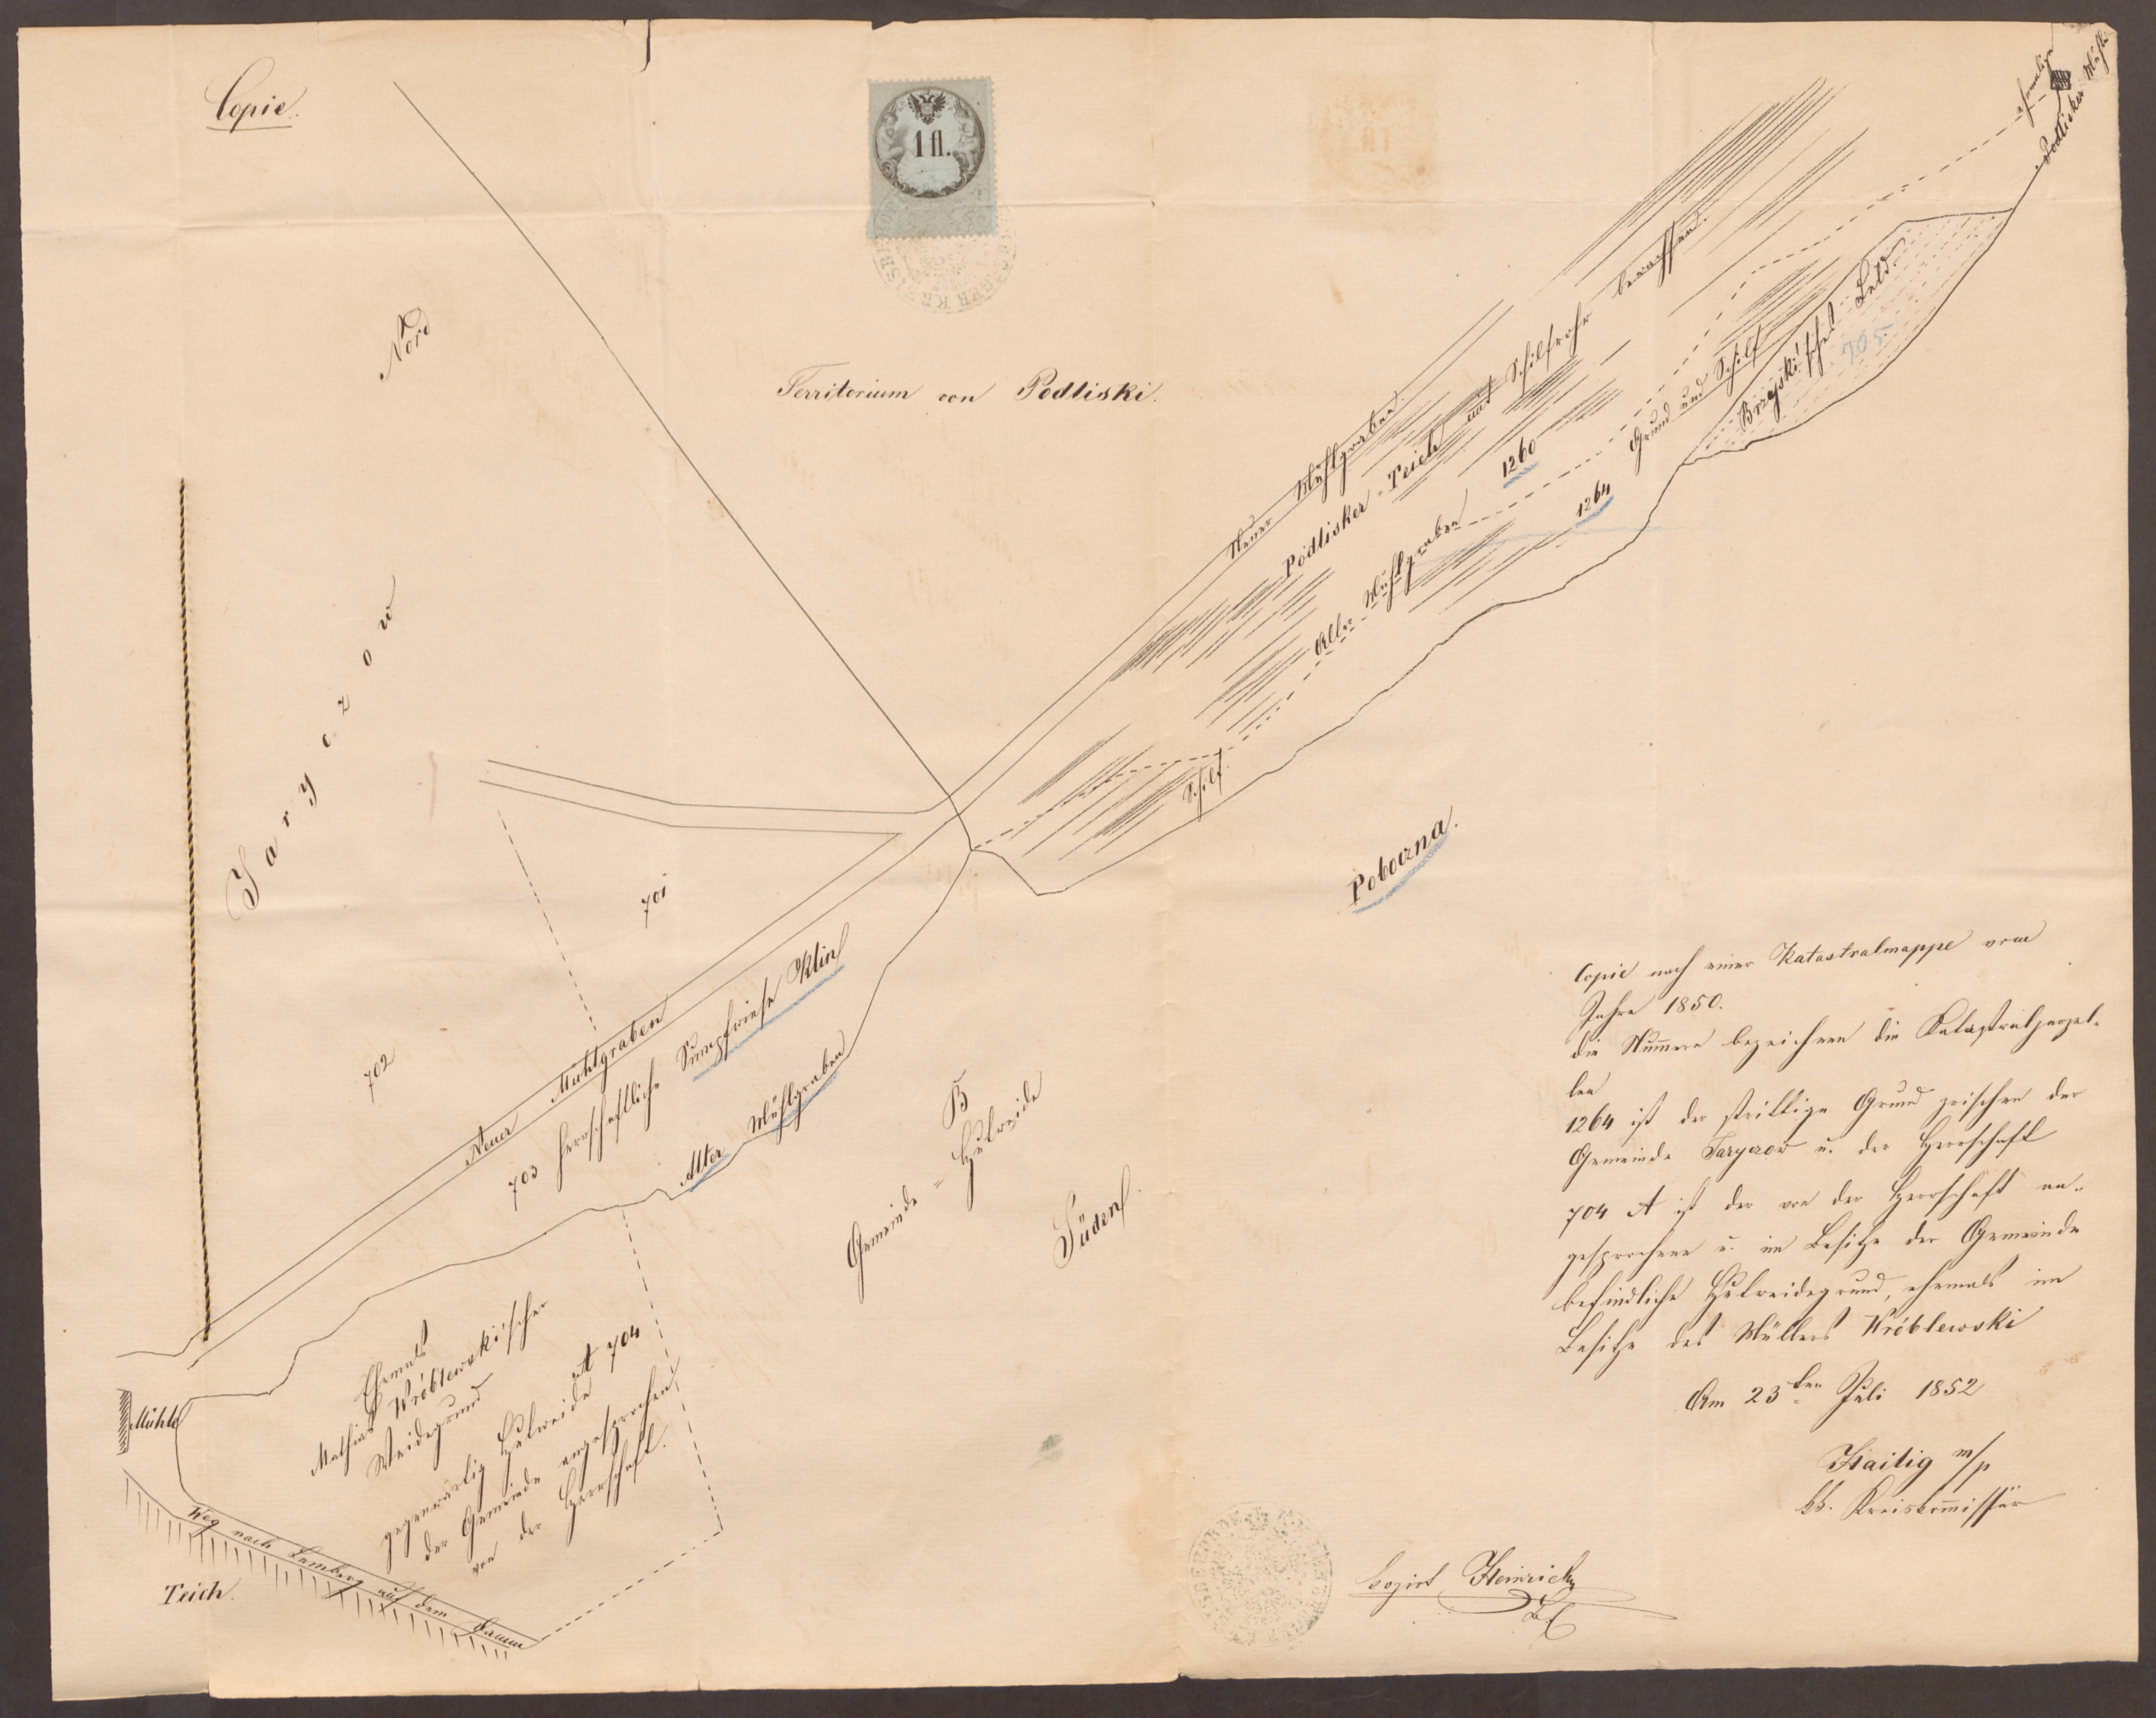 Copie.
1 fl.
Nord
Territorium von Podliski.
Jaryczow
ehemalige
Podlisker Mühle
Neuer Mühlgraben.
Podlisker-Teich mit Schilfrohr bewachsen.
1260
Alter Mühlgraben
1264
Grund und Schilf
Brzyski'sches Feld.
705
Schilf.
Poboczna.
701
702
Neuer Mühlgraben
703 herrschaftliche Sumpfwiese Klin
Alter Mühlgraben
B
Gemeinde-Hutweide
Süden.
Ehemals
Mathias Wróblewski'scher
Weidegrund
gegenwärtig Hutweide A 704
der Gemeinde angesprochen
von der Herrschaft.
Mühle
Weg nach Lemberg auf dem Damm
Teich.
Copie nach einer Katastralmappe vom
Jahre 1850.
die Num̄ern bezeichnen die Katastralparzel-
len
1264 ist der strittige Grund zwischen der
Gemeinde Jaryczow u. der Herrschaft
704 A ist der von der Herrschaft an-
gesprochene u. im Besitze der Gemeinde
befindliche Hutweidegrund, ehemals im
Besitze des Müllers Wróblewski
Am 23ten Juli 1852
Haitig m/p
kk. Kreiskom̄issär
Copirt Heinrich